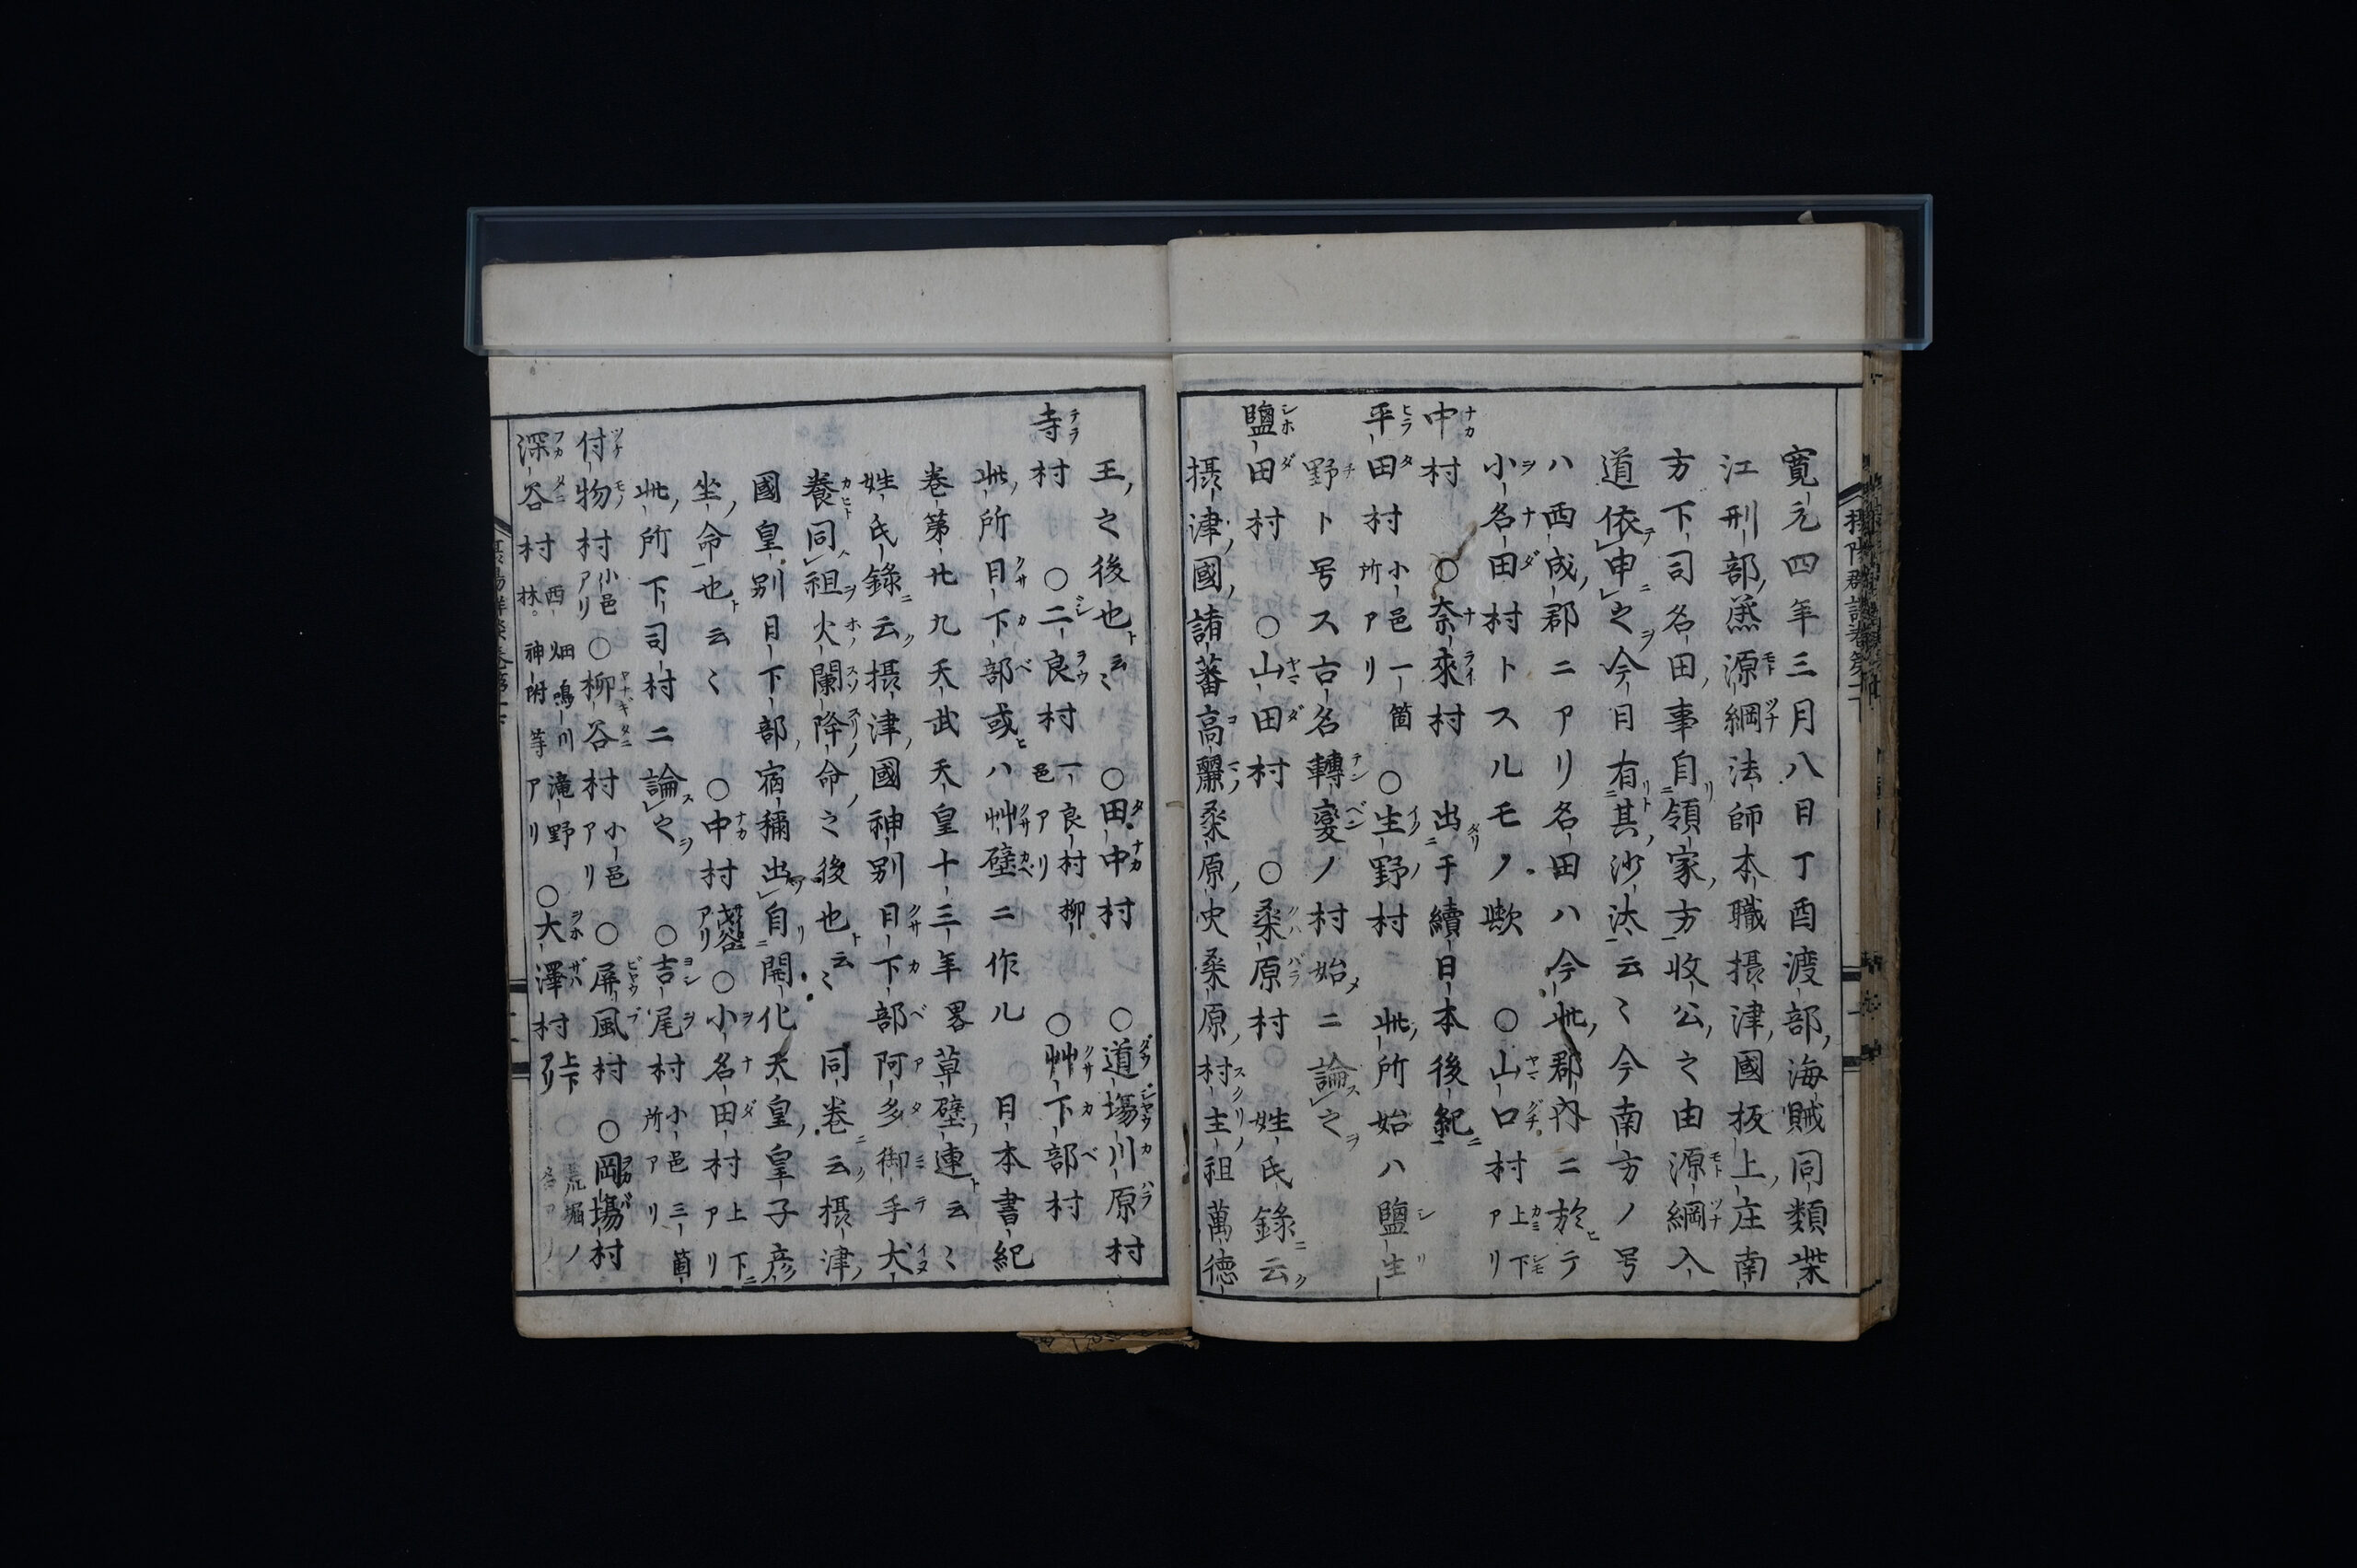 寛元四年三月八日丁酉渡部海賊同類柴
江刑部蒸源綱法師本職摂津國板上庄南
方下司名田事自領家方收公之由源綱入
道依申之今日有其沙汰云〻今南方ノ号
ハ西成郡ニアリ名田ハ今此郡内ニ於テ
小名田村トスルモノ歟 ○山口村上下アリ
中村 ○奈來村 出于續日本後紀
平田村小邑一箇所アリ ○生野村 此所始ハ鹽生
野ト号ス古名轉變ノ村始ニ論之
鹽田村 ○山田村 ○桑原村 姓氏錄云
摂津國諸蕃高麗桑原史桑原村主祖萬德
王之後也云〻 ○田中村 ○道場川原村
寺村 ○二良村一良村柳邑アリ ○艸下部村
此所日下部或ハ艸壁ニ作ル 日本書紀
巻第廿九天武天皇十三年畧草壁連云〻
姓氏錄云摂津國神別日下部阿多御手犬
養同祖火闌降命之後也云〻 同巻云摂津
國皇別日下部宿禰出自開化天皇皇子彦
坐命也云〻 ○中村 アリ ○小名田村上下アリ
此所下司村ニ論之 ○吉尾村小邑三箇所アリ
付物村小邑アリ ○柳谷村小邑アリ ○屏風村 ○岡場村
深谷村西畑鳴川滝野林神附等アリ ○大澤村上下アリ